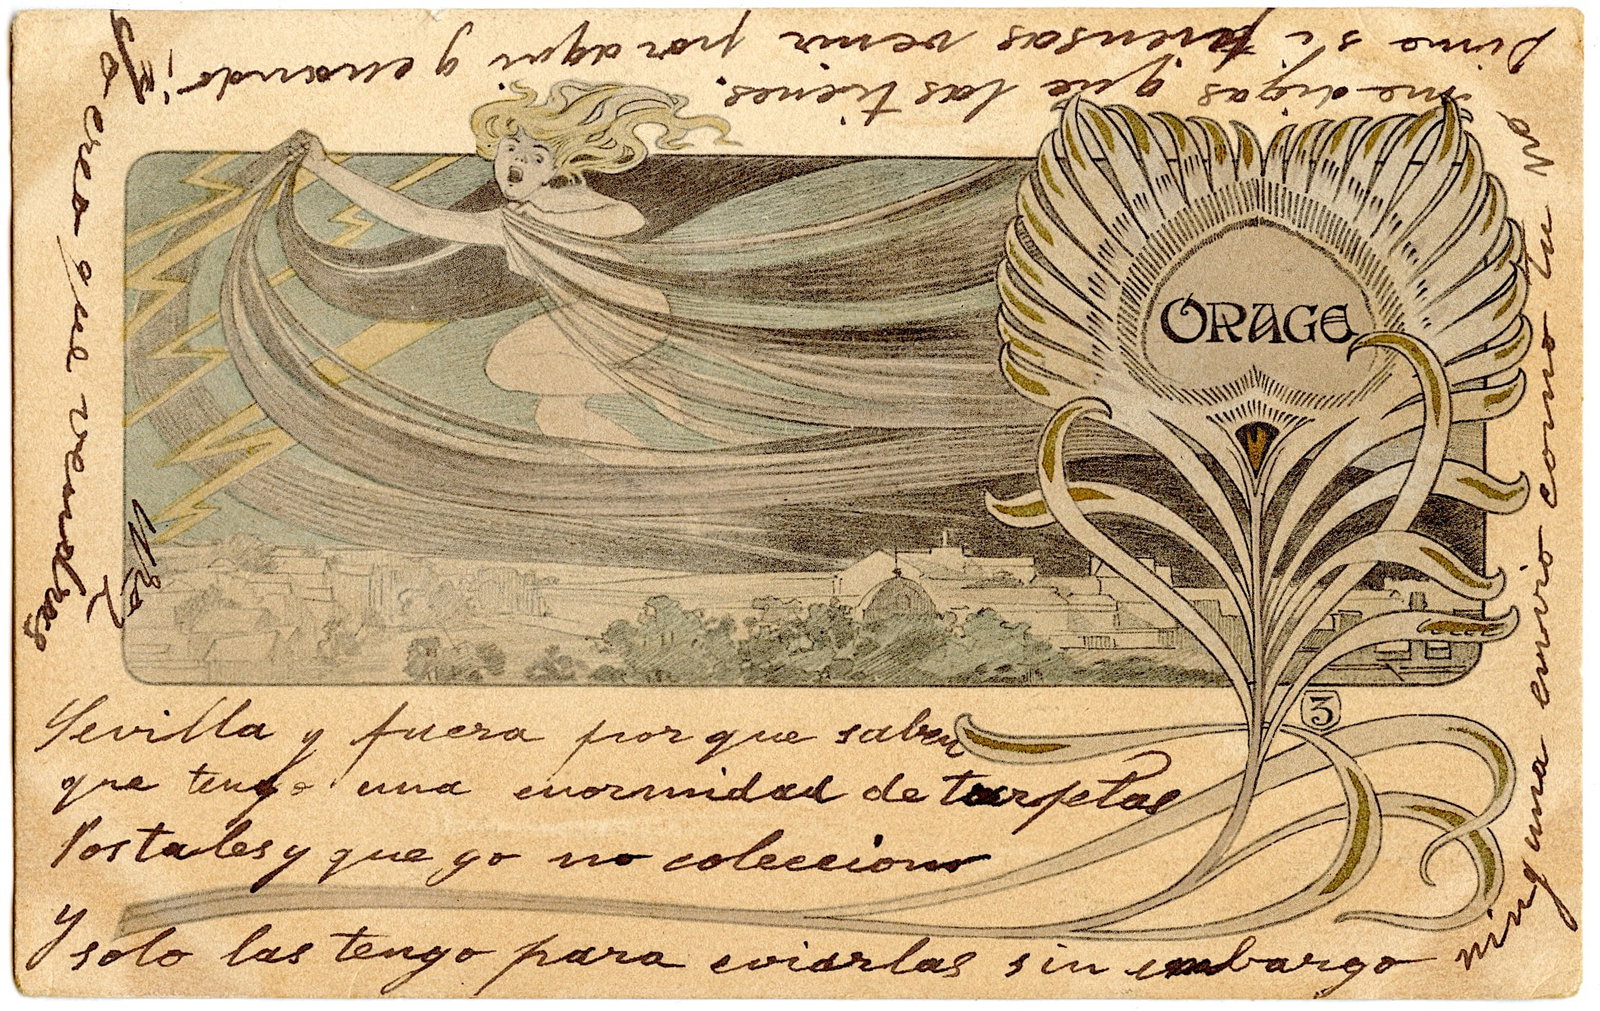 ORAGE
3
Sevilla y fuera por que saben
que tengo una enormidad de tarjetas
Postales y que yo no colecciono
y solo las tengo para eviarlas sin embargo
ninguna envio como tu no
me digas que las tienes.
Dime si piensas venir por aqui y cuando ¡
Yo creo que vendras